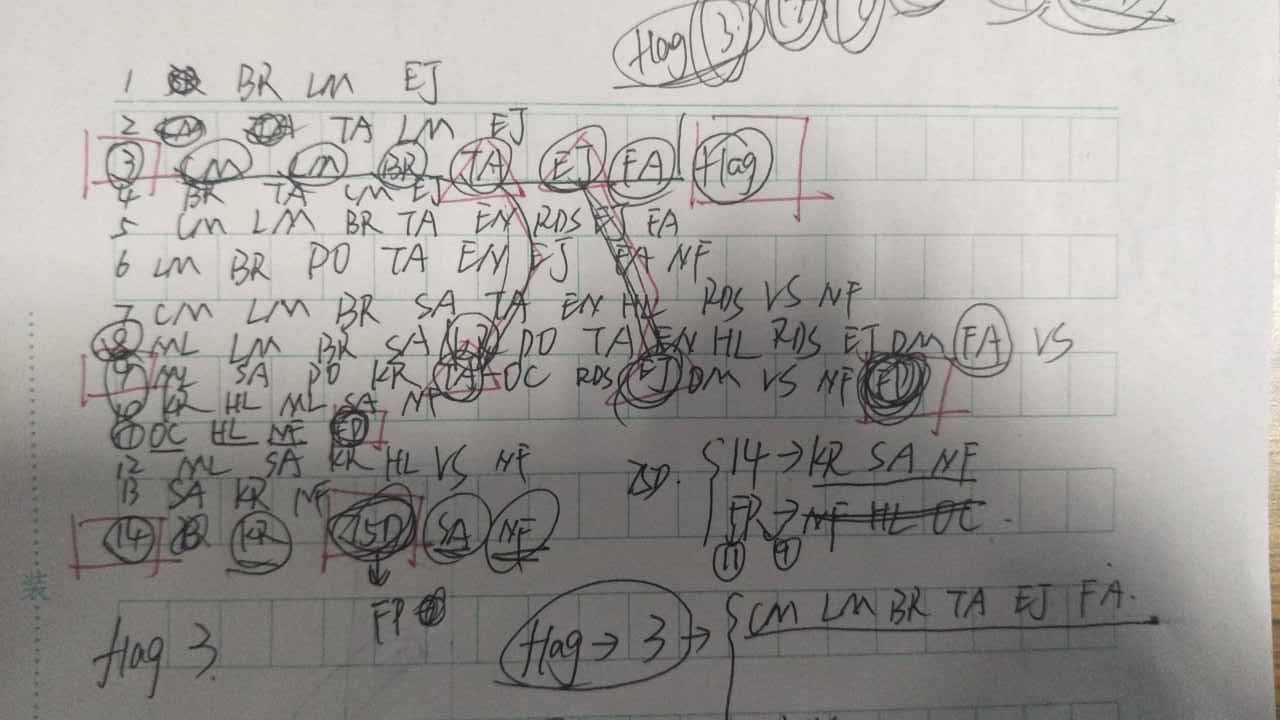 flag 3
1 BR LM EJ
2 CM TA LM EJ
3 CM LM BR TA EJ FA flag
4 BR TA CM EJ
5 CM LM BR TA EN RDS EJ FA
6 LM BR DO TA EN EJ FA NF
7 CM LM BR SA TA EN HL RDS VS NF
8 ML LM BR SA KR DO TA EN HL RDS EJ DM FA VS
9 ML SA DO KR TA OC RDS EJ DM VS NF
10 KR HL ML SA NF
11 OC HL NF
12 ML SA KR HL VS NF
13 SA KR NF
14 KR ZSD SA NF
ZSD. 14→KR SA NF
→NF HL OC
11 9
FP
flag 3.
flag→3→ CM LM BR TA EJ FA.
装